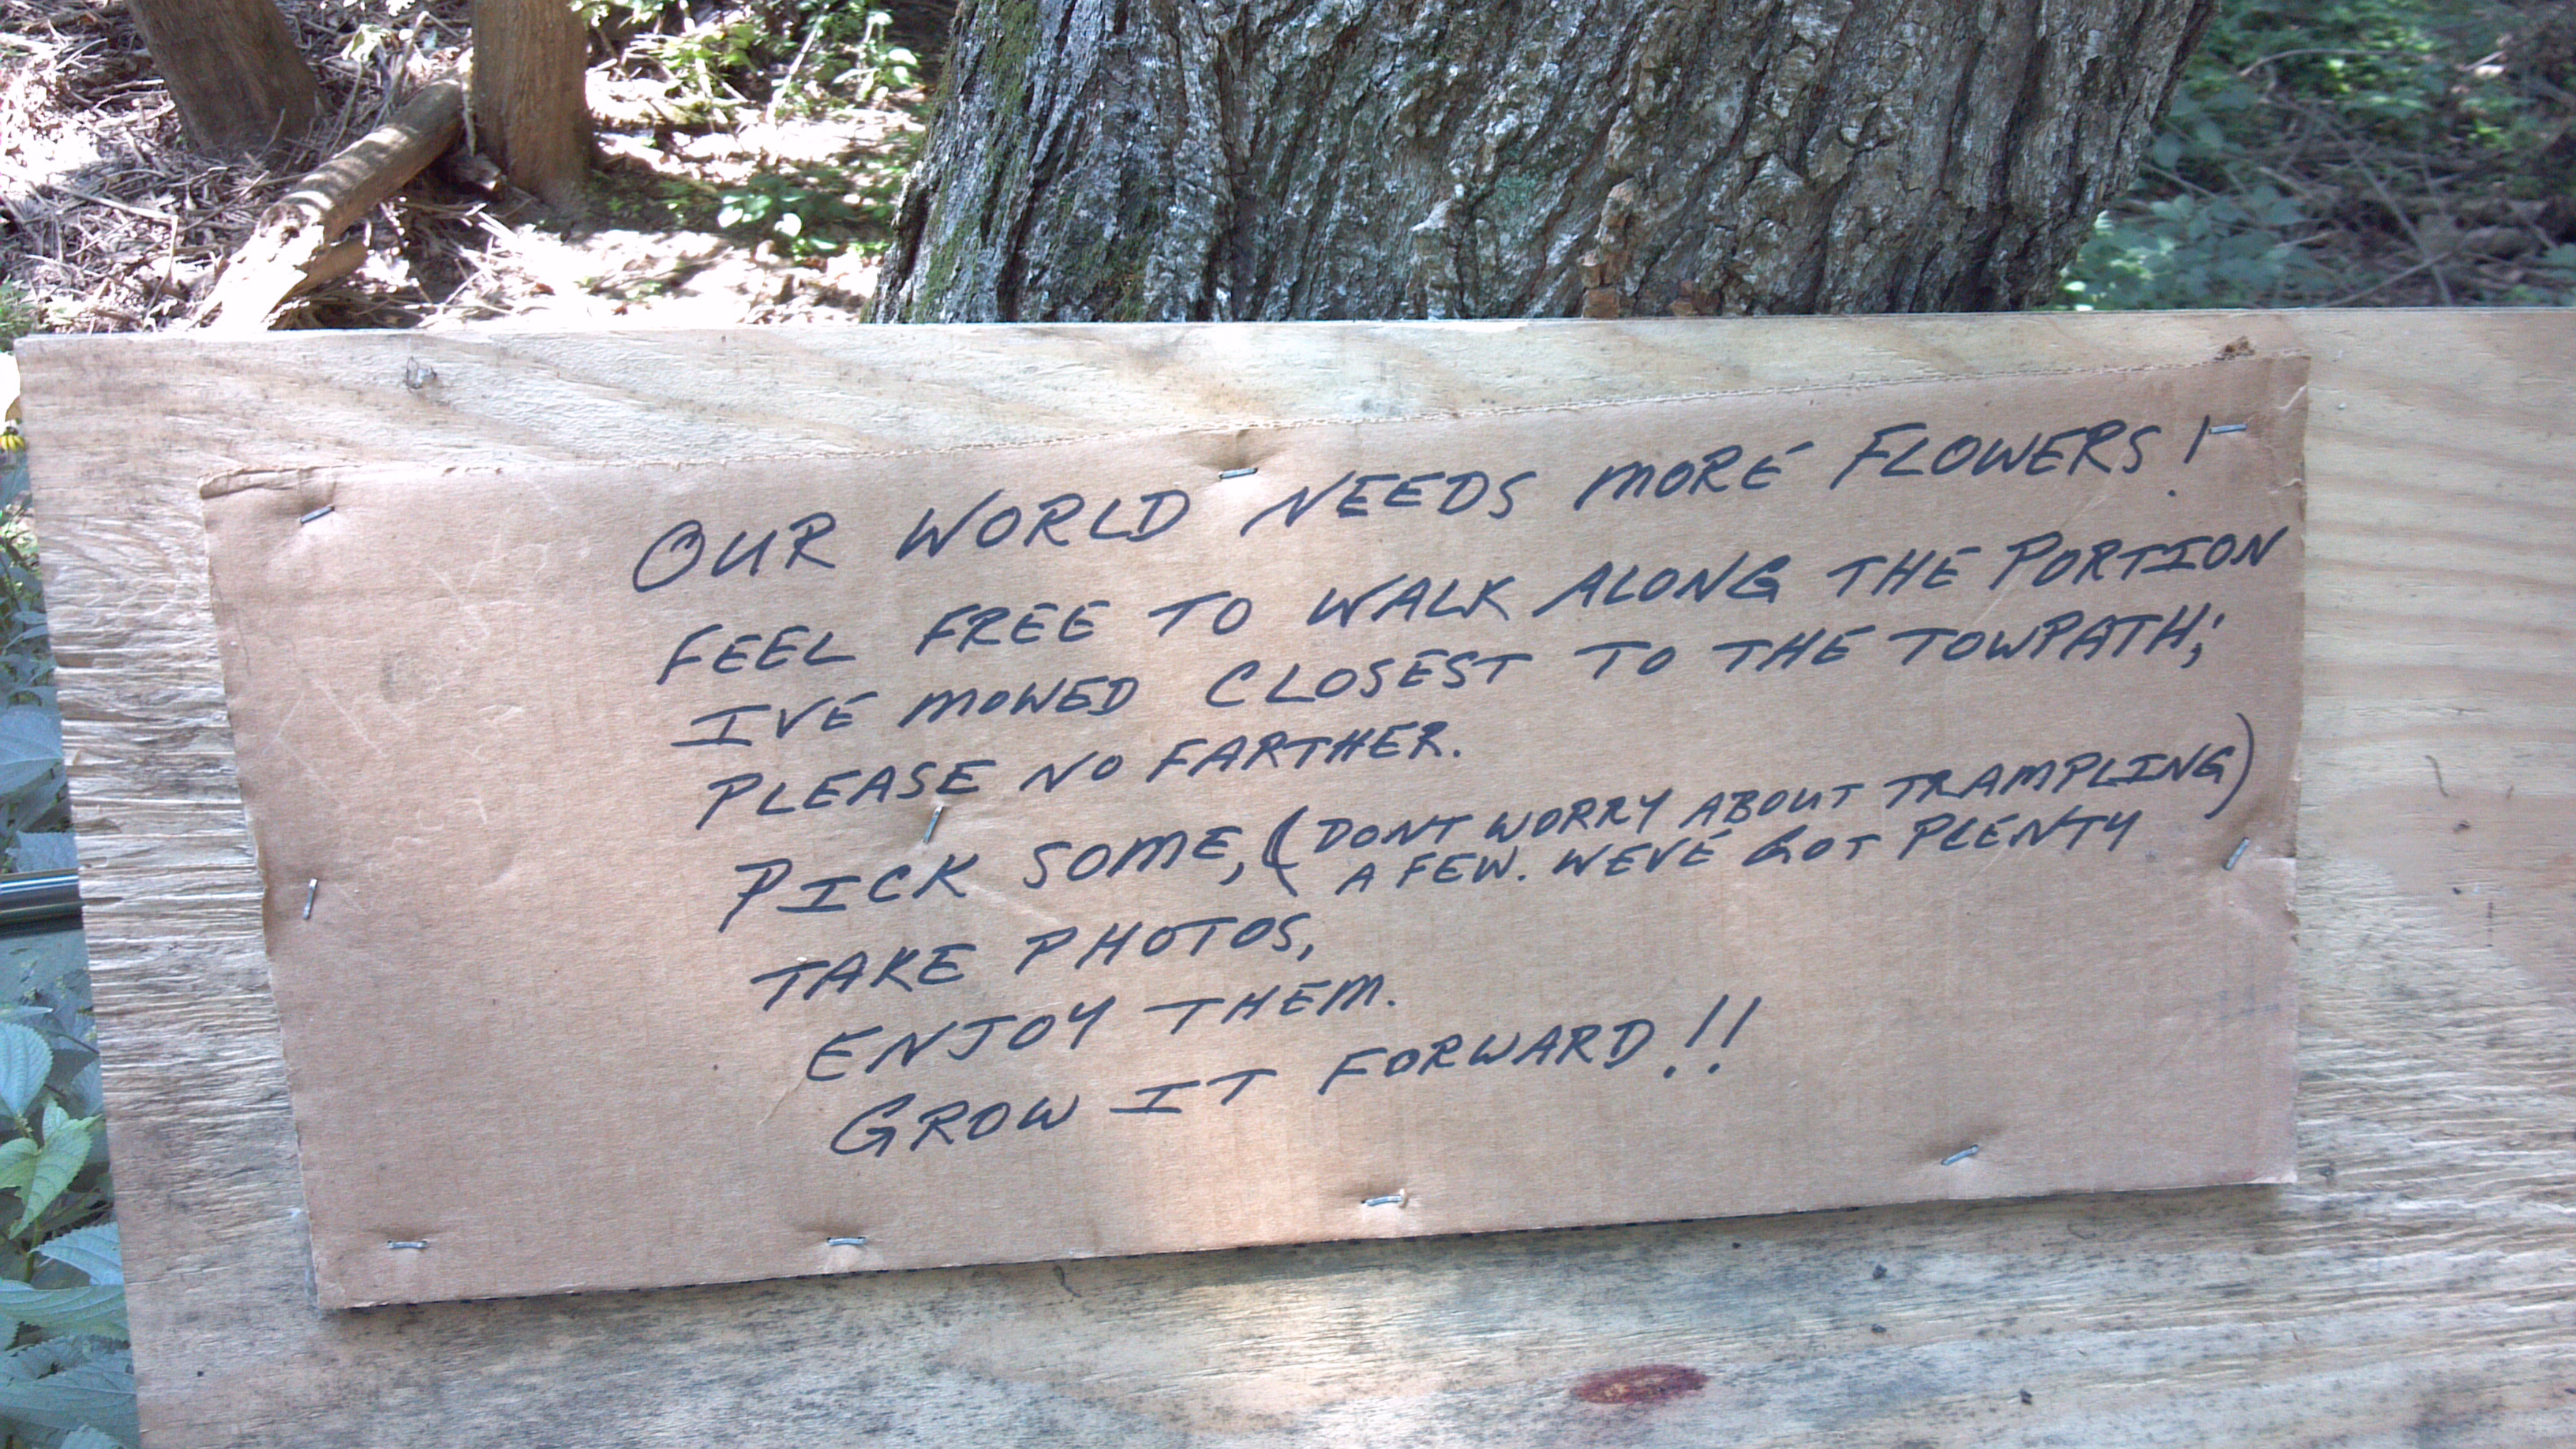 OUR WORLD NEEDS MORE FLOWERS!
FEEL FREE TO WALK ALONG THE PORTION
I'VE MOWED CLOSEST TO THE TOWPATH;
PLEASE NO FARTHER.
PICK SOME, (DONT WORRY ABOUT TRAMPLING)
A FEW. WEVE GOT PLENTY
TAKE PHOTOS,
ENJOY THEM.
GROW IT FORWARD!!